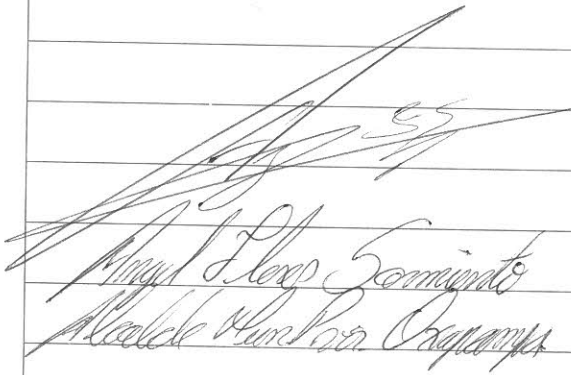 Angel Flores Sarmiento
Alcalde Mun Prov. Oxapampa